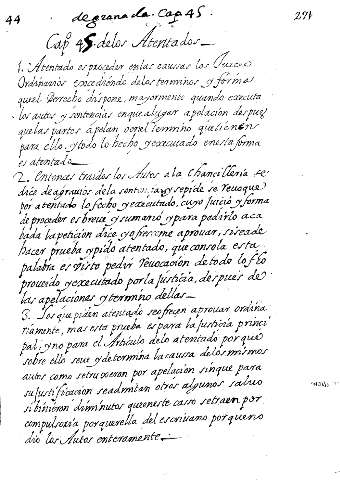 44 de granada. Cap. 45. 271
Cap. 45. de los Atentados
1. Atentado es proceder en las causas los Jueces
Ordinarios excediendo de los terminos y forma
que el Derecho dispone, mayormente quando executa
los autos y sentencias en que a lugar apelacion despues
que las partes apelan o por el termino que tienen
para ello, y todo lo hecho y executado en esta forma
es atentado
2. Entonces traidos los Autos a la Chancilleria se
dice de agravios de la sentencia, y se pide se revoque
por atentado lo fecho y executado, cuyo juicio y forma
de proceder es breve y sumario, y para pedirlo aca
bada la peticion dice y ofrezcome aprovar, si se a de
hacer prueba o pido atentado, que con sola esta
palabra es visto pedir revocacion de todo lo fho
proveido y executado por la Justicia, despues de
las apelaciones y termino dellas
3. Los que piden atentado se ofrecen aprovar ordina
riamente, mas esta prueba es para la Justicia princi
pal, y no para el Articulo de lo atentado porque
sobre ello se ve y determina la causa de los mismos
autos como se truxeron por apelacion sin que para
su justificacion se admitan otros algunos salvo
si vinieron diminutos que en este caso se traen por
compulsoria por querella del escrivano porque no
dio los Autos enteramente